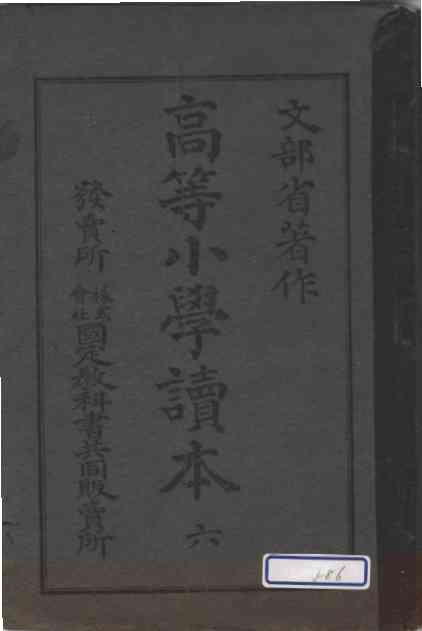 文部省著作
高等小學讀本 六
發賣所 株式會社 國定教科書共同販賣所
186